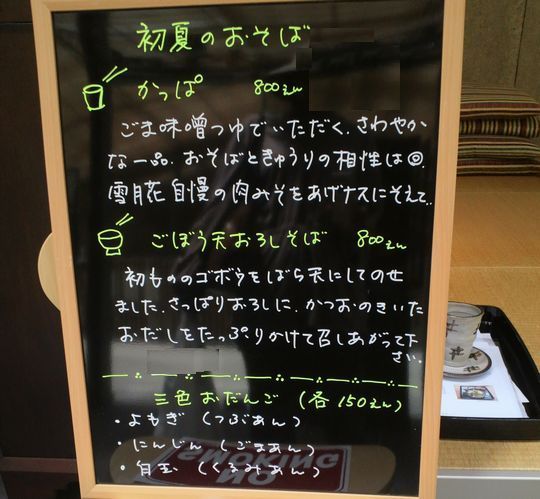 初夏のおそば
かっぱ 800えん
ごま味噌つゆでいただく、さわやか
な一品。おそばときゅうりの相性は◎
雪月花自慢の肉みそをあげナスにそえて..
ごぼう天おろしそば 800えん
初もののゴボウをばら天にしてのせ
ました。さっぱりおろしに、かつおのきいた
おだしをたっぷりかけて召しあがって下
さい。
三色おだんご (各150えん)
・よもぎ (つぶあん)
・にんじん (ごまあん)
・白玉 (くるみあん)
NO SMOKING